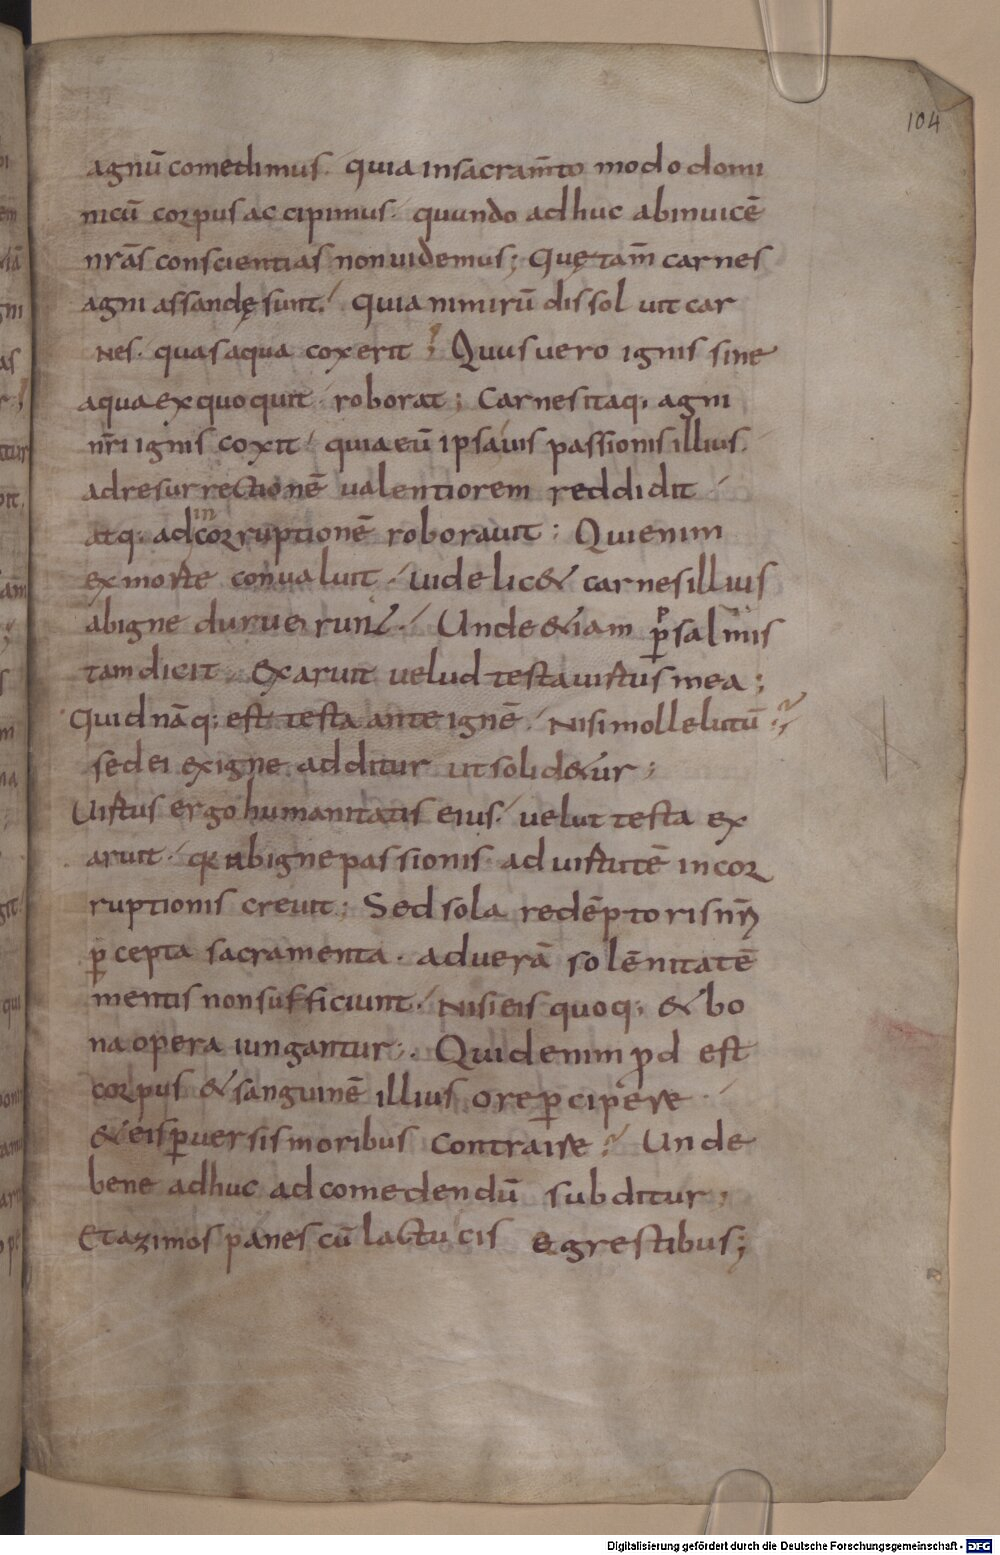 104
agnū comedimus. quia insacram̄to modo domi
nicū corpus accipimus. quando adhuc abinuicē
nr̄as conscientias nonuidemus; Quę tam̄ carnes
agni assandę sunt. Quia nimirū dissoluit car
nes. quas aqua coxerit; Quas uero ignis sine
aqua exquoquit roborat; Carnes itaq; agni
nr̄i ignis coxit. quia eū ipsa uis passionis illius.
adresurrectionē ualentiorem reddidit
atq; ad incorruptionē roborauit; Qui enim
ex morte conualuit. uidelic& carnes illius
abigne duruerunt. Unde &iam p̄ salmis
tam dicit. Exaruit uelud testa uirtus mea;
Quid nāq; est testa ante ignē. Nisi molle lutū?
sed ei ex igne additur ut solid&ur;
Uirtus ergo humanitatis eius. uelut testa ex
aruit. qr abigne passionis. ad uirtutē incor
ruptionis creuit; Sed sola redēptoris nr̄i
p̄cepta sacramenta. aduerā solēnitatē
mentis non sufficiunt. Nisi eis quoq; & bo
na opera iungantur;. Quid enim pd est
corpus & sanguinē illius ore p̄cipere
& eis p̱uersis moribus contraire? Unde
bene adhuc ad comedendū subditur;
Et azimos panes cū lactucis agrestibus;
Digitalisierung gefördert durch die Deutsche Forschungsgemeinschaft - DFG